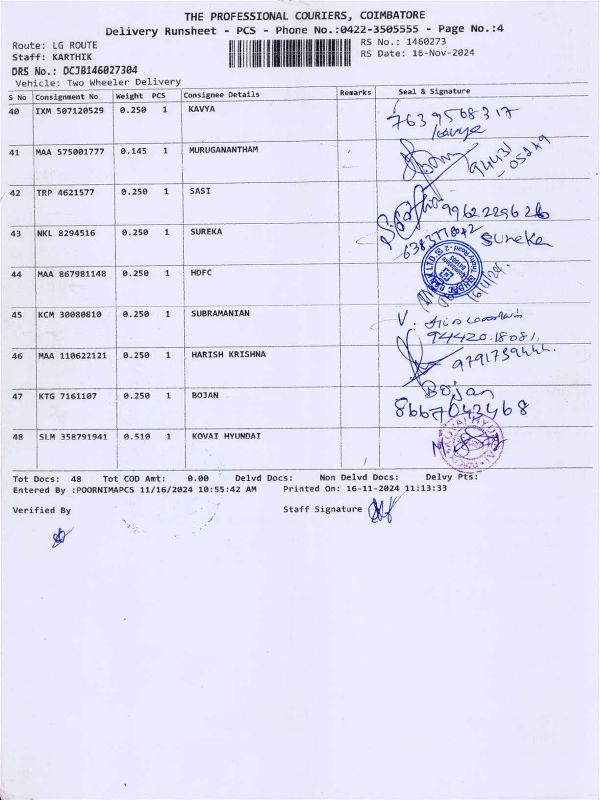 THE PROFESSIONAL COURIERS, COIMBATORE
Delivery Runsheet - PCS - Phone No.:0422-3505555 - Page No.:4
Route: LG ROUTE
RS No.: 1460273
Staff: KARTHIK
RS Date: 16-Nov-2024
DRS No.: DCJB146027304
Vehicle: Two Wheeler Delivery
S No Consignment No Weight PCS Consignee Details Remarks Seal & Signature
40 IXM 507120529 0.250 1 KAVYA 7639568317
Kavya
41 MAA 575001777 0.145 1 MURUGANANTHAM 94431
42 TRP 4621577 0.250 1 SASI 9962229626
43 NKL 8294516 0.250 1 SUREKA Sureka
44 MAA 867981148 0.250 1 HDFC
45 KCM 30080810 0.250 1 SUBRAMANIAN V.
94420 18081
46 MAA 110622121 0.250 1 HARISH KRISHNA 9791739444
47 KTG 7161107 0.250 1 BOJAN Bojan
8667043468
48 SLM 358791941 0.510 1 KOVAI HYUNDAI
Tot Docs: 48 Tot COD Amt: 0.00 Delvd Docs: Non Delvd Docs: Delvy Pts:
Entered By :POORNIMAPCS 11/16/2024 10:55:42 AM Printed On: 16-11-2024 11:13:33
Verified By Staff Signature